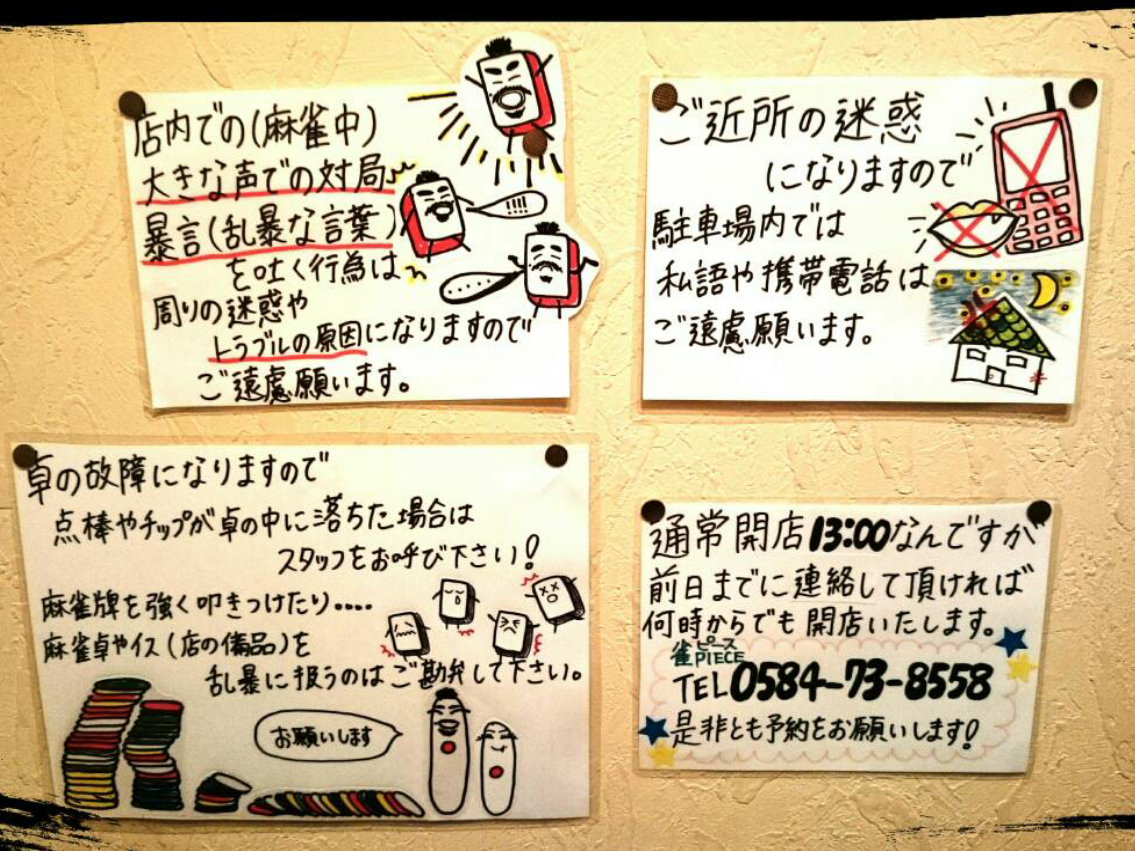 店内での(麻雀中)
大きな声での対局や
暴言(乱暴な言葉)
を吐く行為は
周りの迷惑や
トラブルの原因になりますので
ご遠慮願います。
ご近所の迷惑
になりますので
駐車場内では
私語や携帯電話は
ご遠慮願います。
卓の故障になりますので
点棒やチップが卓の中に落ちた場合は
スタッフをお呼び下さい!
麻雀牌を強く叩きつけたり....
麻雀卓やイス(店の備品)を
乱暴に扱うのはご勘弁して下さい。
お願いします
通常開店13:00なんですが
前日までに連絡して頂ければ
何時からでも開店いたします。
ピース
雀PIECE
TEL0584-73-8558
是非とも予約をお願いします!